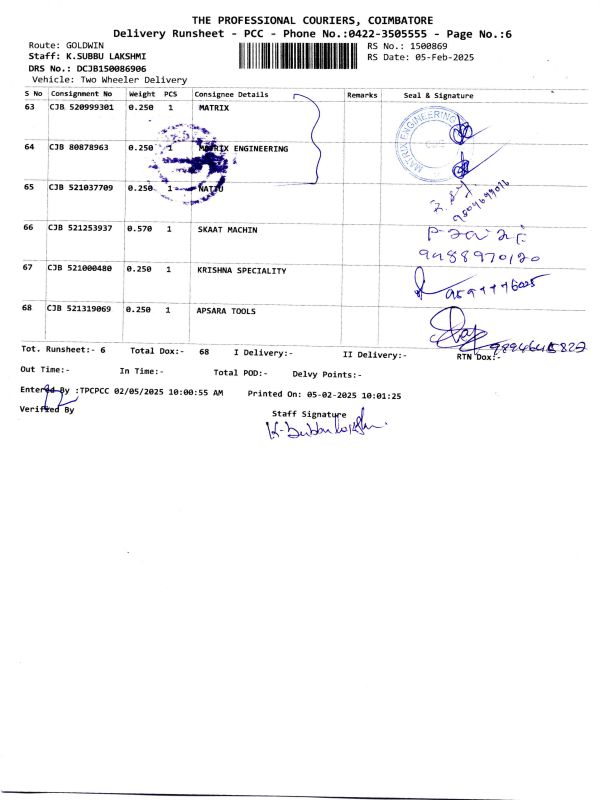 THE PROFESSIONAL COURIERS, COIMBATORE
Delivery Runsheet - PCC - Phone No.:0422-3505555 - Page No.:6
Route: GOLDWIN RS No.: 1500869
Staff: K.SUBBU LAKSHMI RS Date: 05-Feb-2025
DRS No.: DCJB150086906
Vehicle: Two Wheeler Delivery
S No Consignment No Weight PCS Consignee Details Remarks Seal & Signature
63 CJB 520999301 0.250 1 MATRIX
MATRIX ENGINEERING
64 CJB 80878963 0.250 1 MATRIX ENGINEERING
65 CJB 521037709 0.250 1 NATIU
66 CJB 521253937 0.570 1 SKAAT MACHIN
9488970120
67 CJB 521000480 0.250 1 KRISHNA SPECIALITY
68 CJB 521319069 0.250 1 APSARA TOOLS
Tot. Runsheet:- 6 Total Dox:- 68 I Delivery:- II Delivery:- RTN Dox:-
Out Time:- In Time:- Total POD:- Delvy Points:-
Entered By :TPCPCC 02/05/2025 10:00:55 AM Printed On: 05-02-2025 10:01:25
Verified By Staff Signature
K. Subbulakshmi